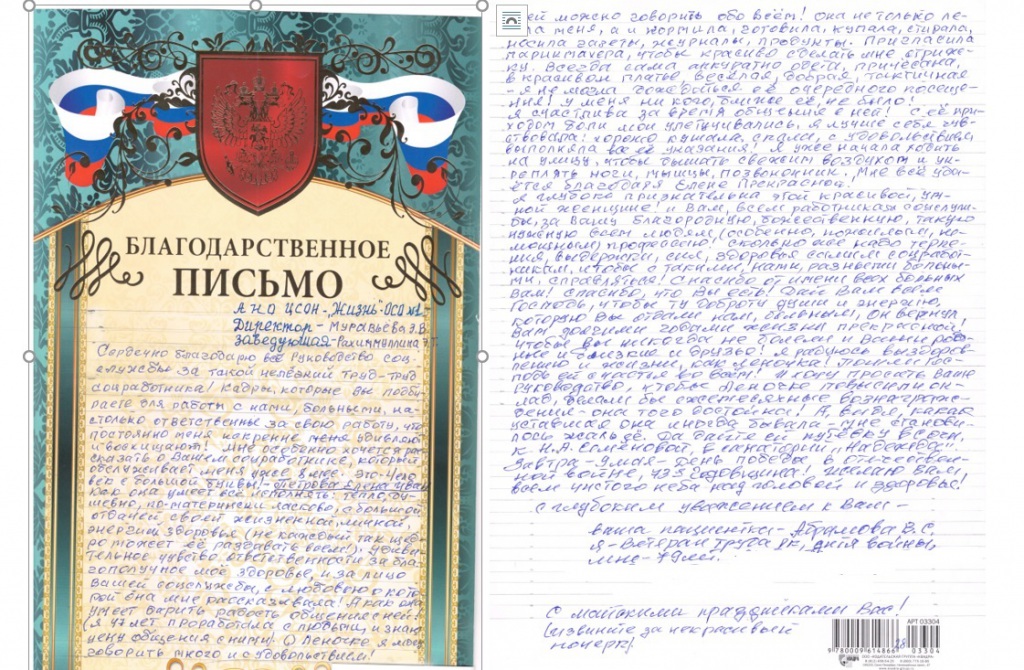 БЛАГОДАРСТВЕННОЕ
ПИСЬМО
АНО ЦСОН - "Жизнь" ОСО №1.
Директор - Муравьева Э.В.
Заведующая - Рахимуллина
Сердечно благодарю все Руководство соц-
службы за такой нелёгкий труд - труд
соцработника! Кадры, которые Вы подби-
раете для работы с нами, больными, на-
столько ответственны за свою работу, что
постоянно меня искренне удивляют
и восхищают! Мне особенно хочется рас-
сказать о Вашем соцработнике, который
обслуживает меня уже 8 мес. - это чело-
век с большой буквы! - Петрова Елена
Как она умеет всё исполнять: тепло, ду-
шевно, по-матерински ласково, с большой
отдачей своей жизненной личной,
энергии, здоровья (не каждый так щед-
ро может её раздавать всем!). Удиви-
тельное чувство ответственности за бла-
гополучное моё здоровье, и за лицо
Вашей соцслужбы, с любовью о кото-
рой она мне рассказывала! А как она
умеет дарить радость общения с ней!
(я 47 лет проработала с людьми, и знаю
цену общения с ними!) О Леночке я могу
говорить много и с удовольствием!
ей можно говорить обо всём! она не только ле-
ла меня, а и кормила, готовила, купала, стирала,
носила газеты, журналы, продукты. Пригласила
парикмахера, чтоб красиво сделать мне стриж-
ку. Всегда сама аккуратно одета, причёсана,
в красивом платье, весёлая, добрая, тактичная
- я не могла дождаться её очередного посеще-
ния! у меня никого, ближе её, не было!
Я счастлива за время общения с ней! С её при-
ходом боли мои улетучивались, я лучше себя чув-
ствовала, хорошо кушала, спала, с удовольствием
выполняла все её указания! Я уже начала ходить
на улицу, чтобы дышать свежим воздухом и ук-
реплять ноги, мышцы, позвоночник. Мне всё уда-
ётся благодаря Елене Прекрасной!
Я глубоко признательна этой красивой, ум-
ной женщине! и Вам, всем работникам соцслуж-
бы, за Вашу благородную, божественную, такую
нужную всем людям, (особенно, пожилым, не-
мощным) профессию! Сколько же надо терпе-
ния, выдержки, сил, здоровья самим соцработ-
никам, чтобы с такими, нами, разными больны-
ми, справляться! Спасибо от имени всех больных
Вам! Спасибо, что Вы есть! Дай Вам всем
Господь, чтобы ту доброту души и энергию,
которую Вы отдали нам, больным, он вернул
Вам долгими годами жизни прекрасной!
Чтобы Вы никогда не болели и Ваши род-
ные и близкие и друзья! Я радуюсь выздоров-
лению и жизни, как Леночка! Пошли Гос-
подь ей счастья от всех! И хочу просить Ваше
руководство, чтобы Леночке повысили ок-
лад, делали бы ежемесячные вознагражде-
ния - она того достойна! А, видя, какая
уставшая она иногда бывала - мне станови-
лось жаль её. Да дайте ей путёвку
к Н.А. Семёновой, в санаторий "Надежда"
Завтра - 9 мая - день победы в Отечествен-
ной войне, 73-я годовщина! Желаю Вам,
всем чистого неба над головой и здоровья!
с глубоким уважением к Вам -
ваша пациентка - Абрамова В.С.
я - Ветеран труда РК, дитя войны,
мне - 79 лет.
С майскими праздниками Вас!
(извините за некрасивый
почерк).
АРТ 03304
9 780009 614866
03304